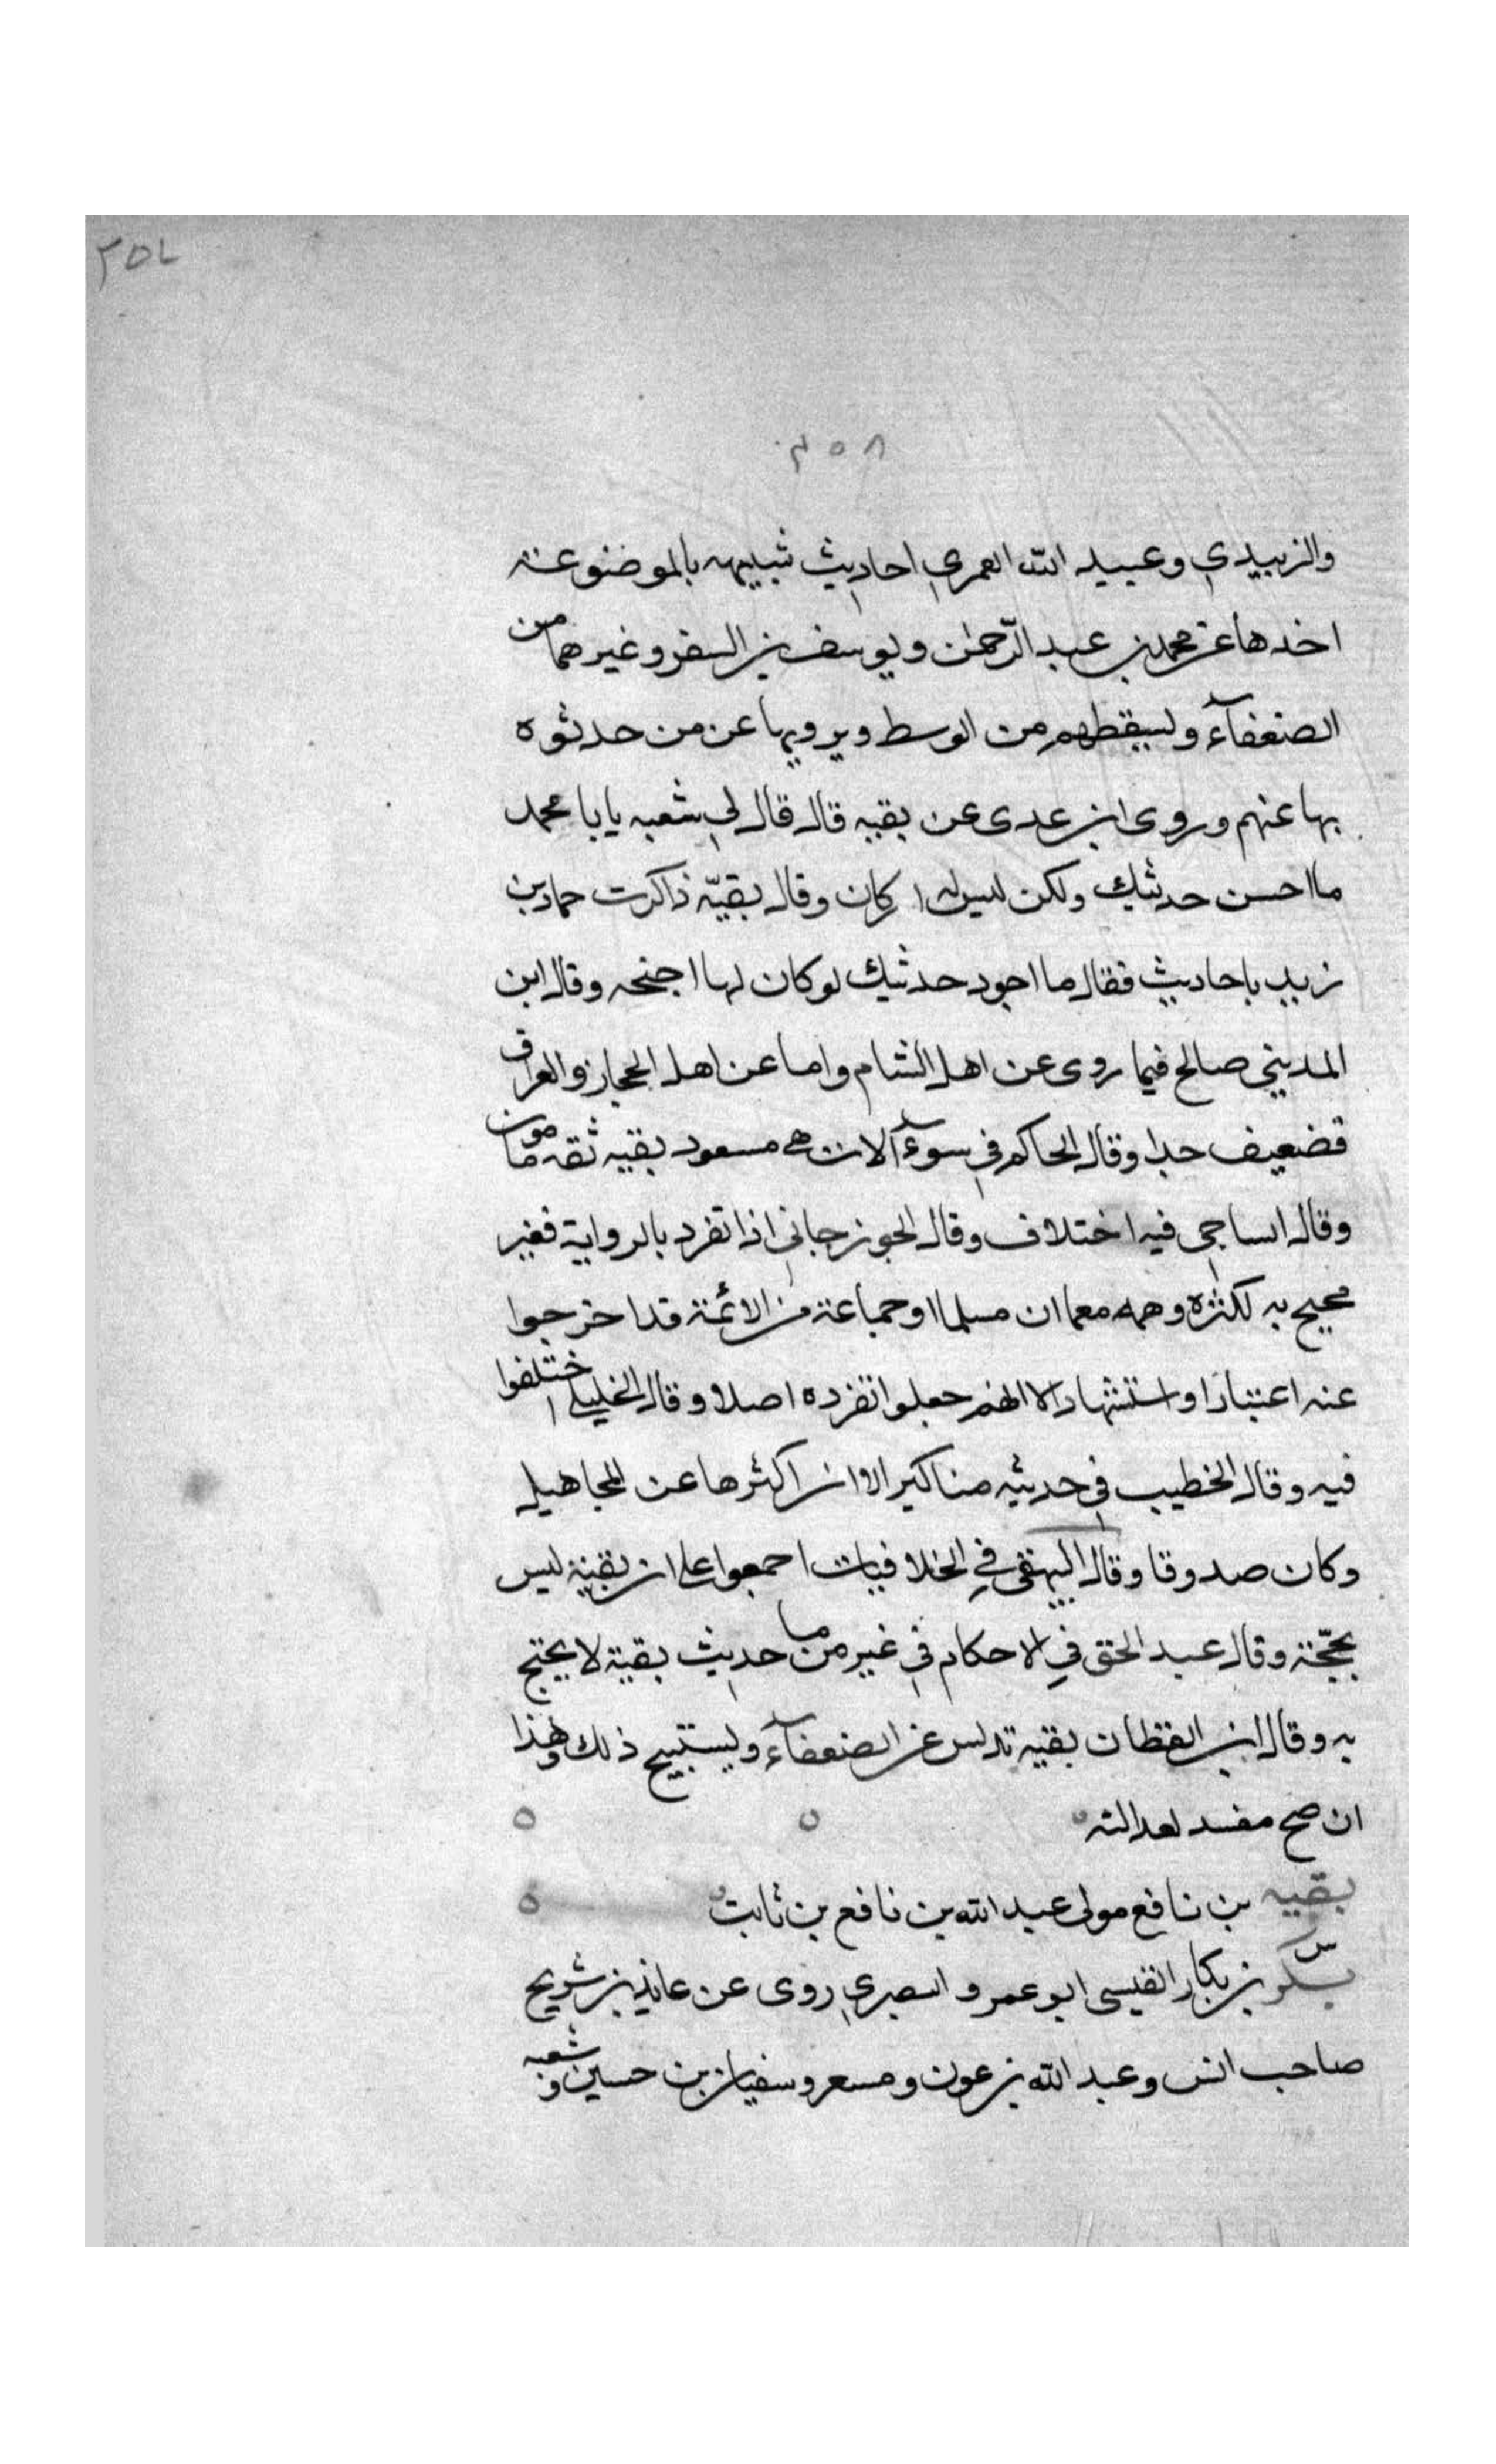 ٢٥٨
٢٥٨
والزبيدي وعبيد الله العمري احاديث شبيهه بالموضوعة
اخذها عن محمد بن عبد الرحمن ويوسف بن السفر وغيرهما من
الضعفآء ويسقطهم من الوسط ويرويها عن من حدثوه
بها عنهم وروى ابن عدى عن بقيه قال قال لي شعبه يابا محمد
ما احسن حديثك ولكن ليس له اركان وقال بقيّه ذاكرت حماد بن
زيد باحاديث فقال ما اجود حديثك لو كان لها اجنحه وقال ابن
المديني صالح فيما روى عن اهل الشام واما عن اهل الحجاز والعراق
فضعيف جدا وقال الحاكم في سوءآلات مسعود بقيه ثقه مامون
وقال الساجى فيه اختلاف وقال الجوزجاني اذا تفرد بالرواية فغير
محيح به لكثره وهمه مع ان مسلما وجماعة من الائمة قد اخرجوا
عنه اعتبارا واستشهادا لا انهم جعلوا تفرده اصلا وقال الخليلي اختلفوا
فيه وقال الخطيب في حديثه مناكير الا ان اكثرها عن المجاهيل
وكان صدوقا وقال البيهقي في الخلافيات اجمعوا على ان بقية ليس
بحجّة وقال عبد الحق في الاحكام في غير ما من حديث بقية لا يحتج
به وقال ابن القطان بقيه تدلس عن الضعفآء ويستبيح ذلك وهذا
ان صح مفسد لعدالته
بقيه بن نافع مولى عبد الله بن نافع بن ثابت
س بكر بن بكار القيسى ابو عمرو البصري روى عن عايذ بن شريح
صاحب انس وعبد الله بن عون ومسعر وسفيان بن حسين وشعبه